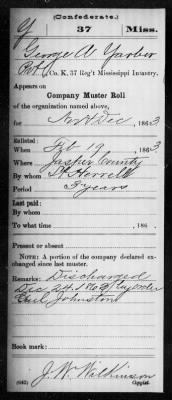 (Confederate.)
Y 37 Miss.
George A Yarber
Pvt, Co. K, 37 Reg't Mississippi Infantry.
Appears on
Company Muster Roll
of the organization named above,
for Nov & Dec, 1863
Enlisted:
When Feb 19, 1863
Where Jasper County
By whom
Period 3 years
Last paid:
By whom
To what time , 186 .
Present or absent
NOTE: A portion of the company declared exchanged since last muster.
Remarks: Discharged
Dec 24. 1863 by order
Genl Johnston
Book mark:
J. W. Wilkinson
(642) Copyist.